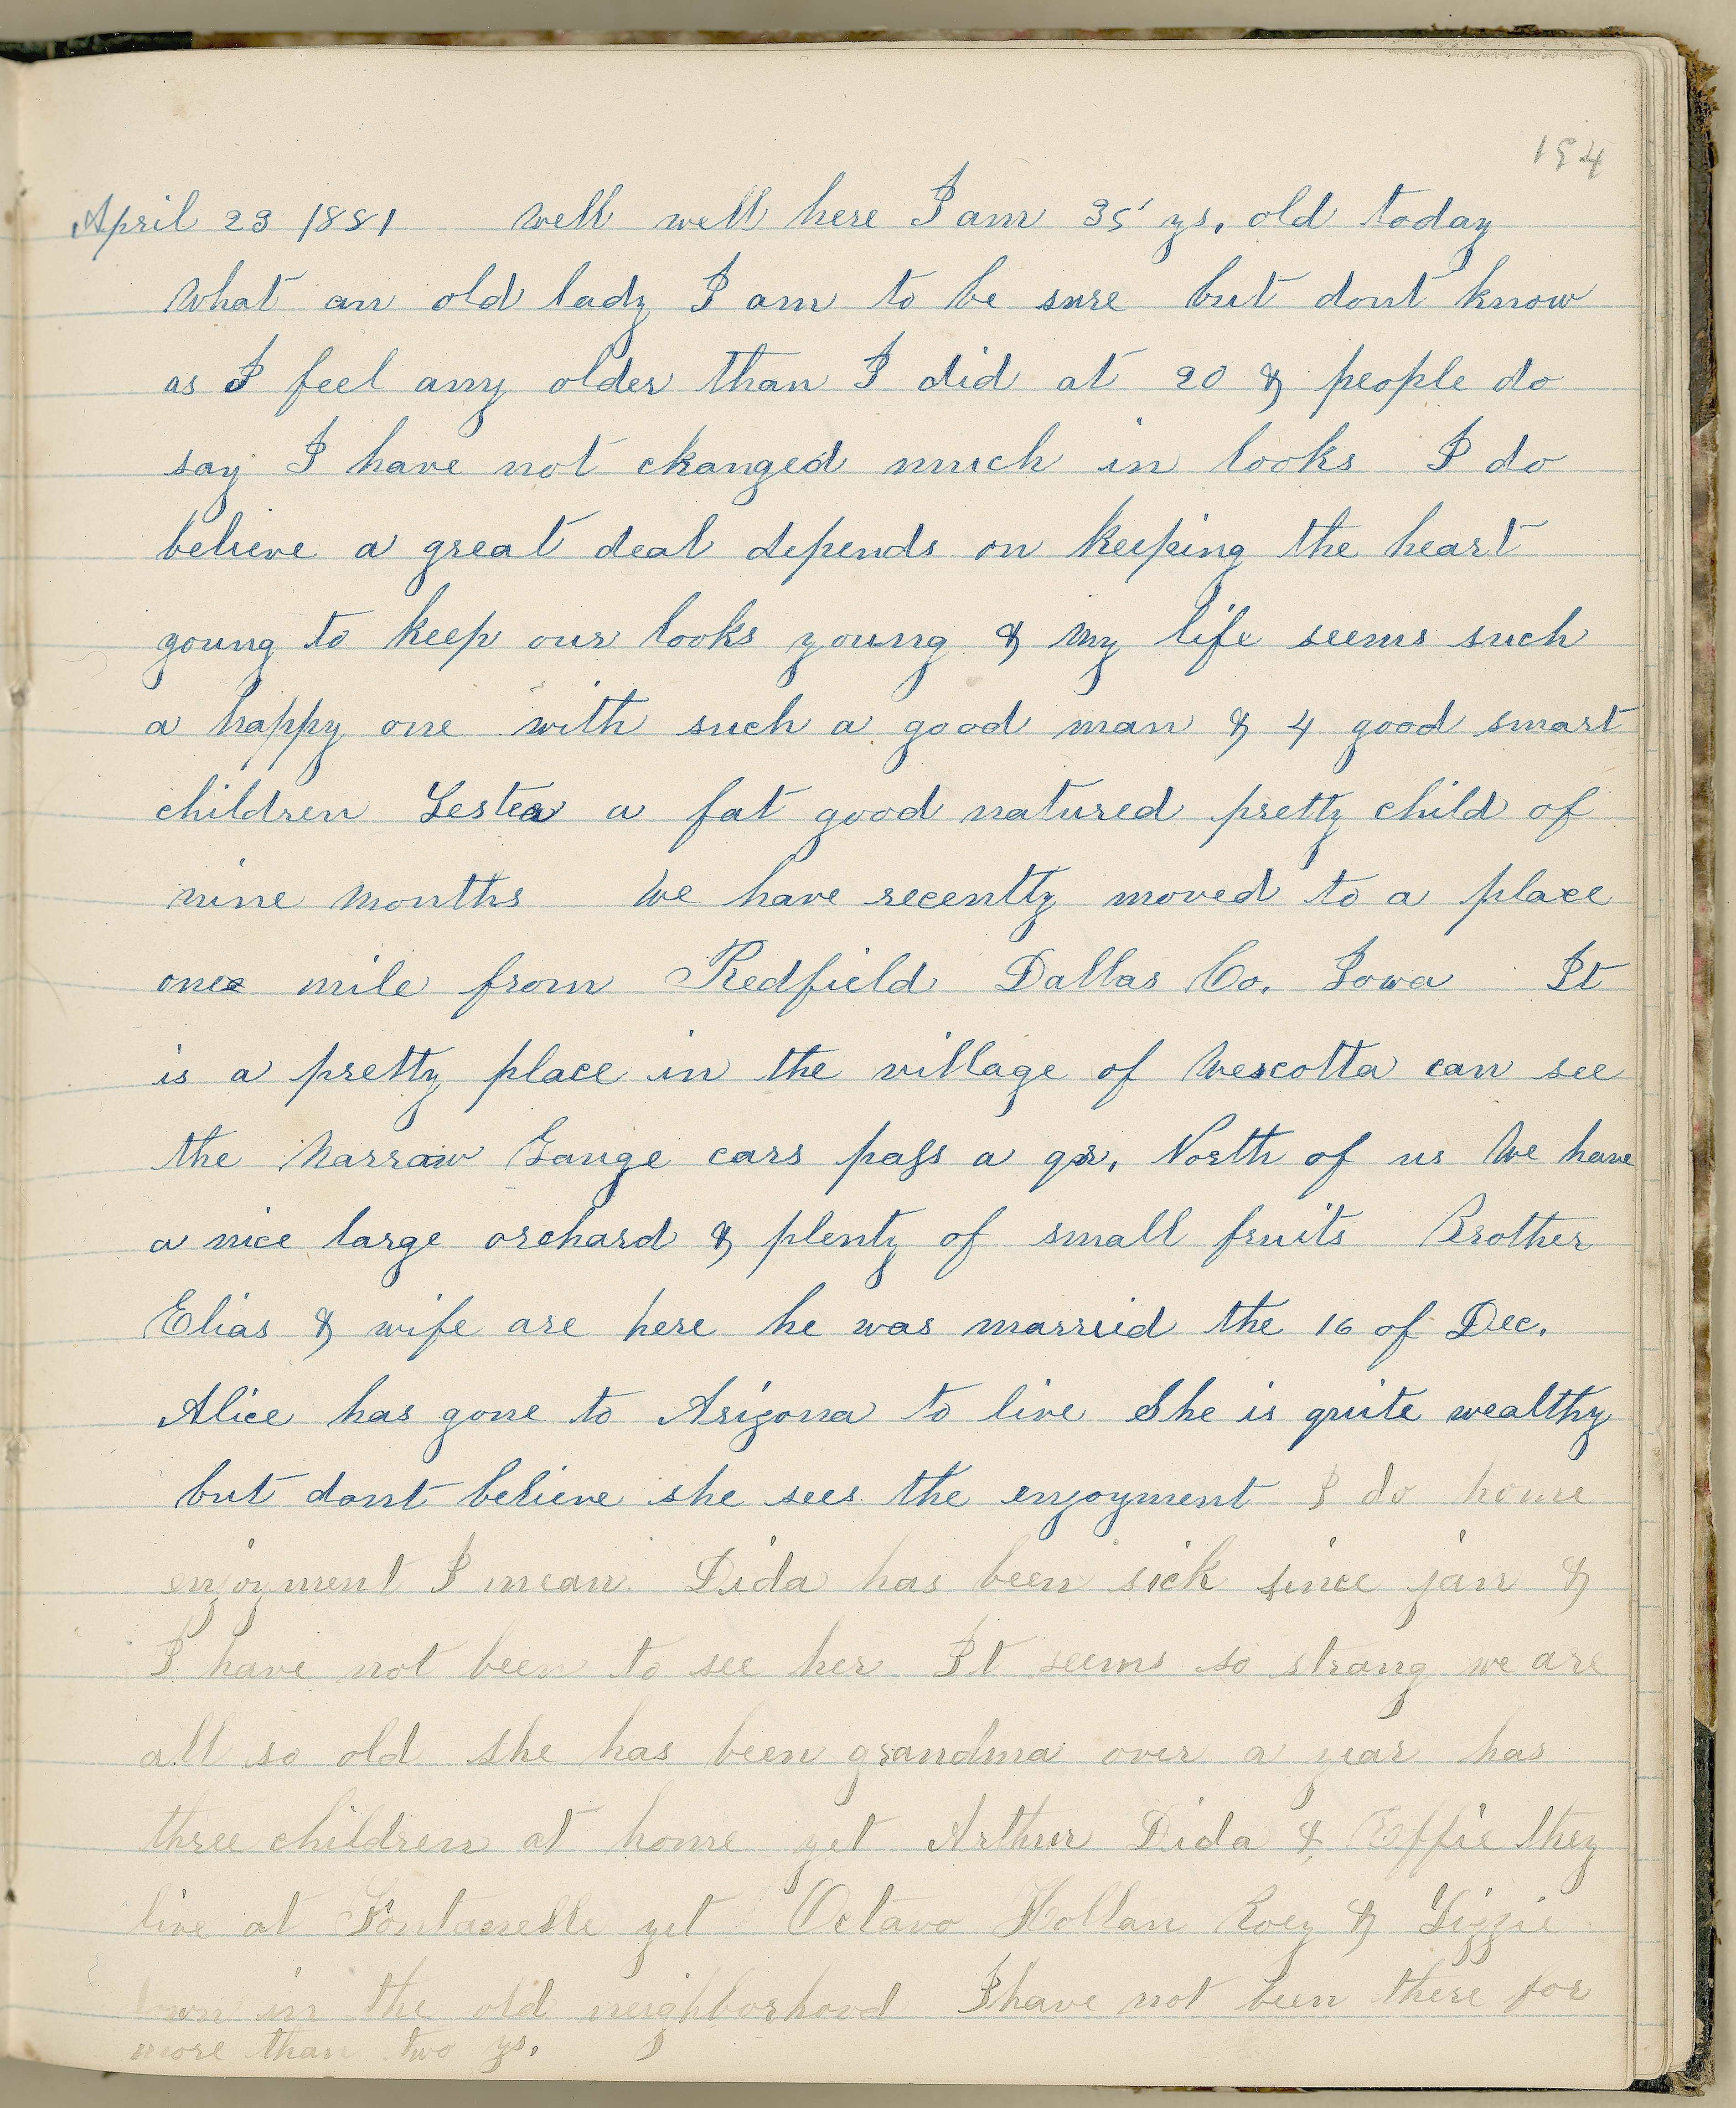 194
April 23 1881 Well well here I am 35 ys, old today
What an old lady I am to be sure but dont know
as I feel any older than I did at 20 & people do
say I have not changed much in looks I do
believe a great deal depends on keeping the heart
young to keep our looks young & my life seems such
a happy one with such a good man & 4 good smart
children Lester a fat good natured pretty child of
nine months We have recently moved to a place
one mile from Redfield Dallas Co. Iowa It
is a pretty place in the village of Wescotta can see
the Narraw Gauge cars pass a qr, North of us We have
a nice large orchard & plenty of small fruits Brother
Elias & wife are here he was married the 16 of Dec.
Alice has gone to Arizona to live She is quite wealthy
but dont believe she sees the enjoyment I do home
enjoyment I mean. Dida has been sick since jan &
I have not been to see her It seems so strang we are
all so old she has been grandma over a year has
three children at home yet Arthur Dida & Effie they
live at Fontanelle yet Octavo Hollan Roey & Lizzie
down in the old neighborhood I have not been there for
more than two ys,